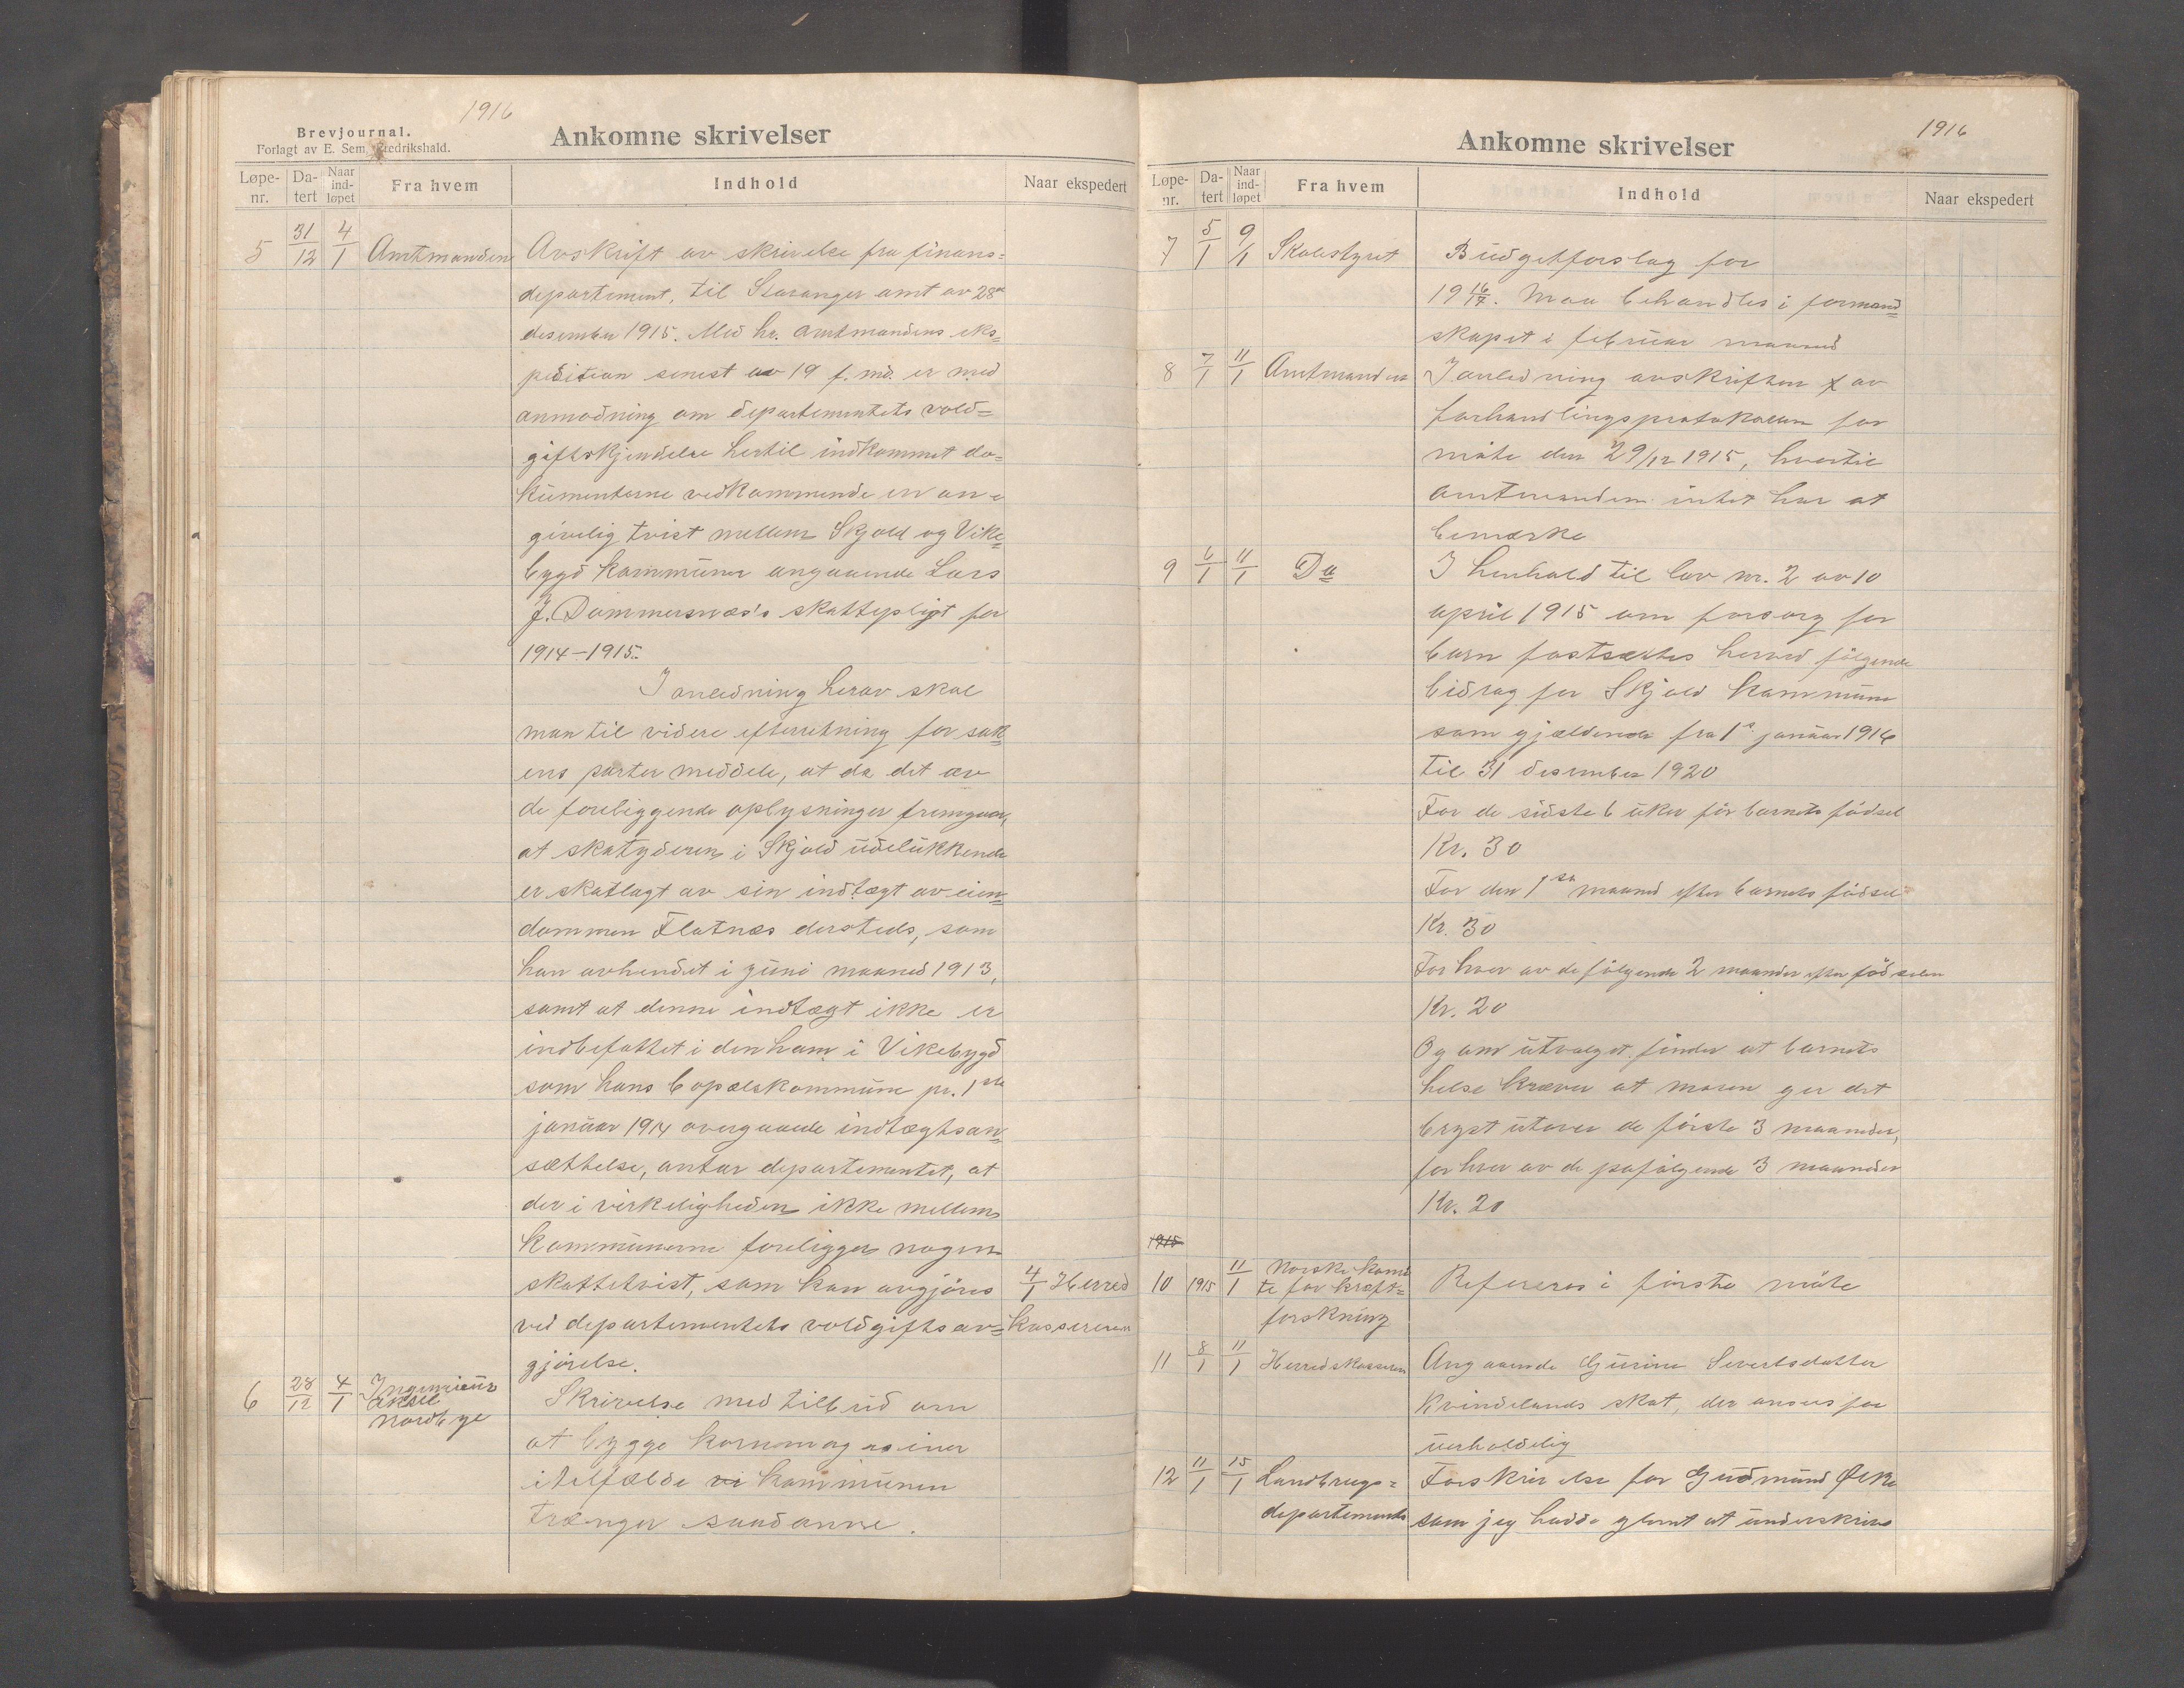 1916
Brevjournal.
Forlagt av E. Sem, Fredrikshald.
Ankomne skrivelser
Løpe-nr. Da-tert Naar ind-løpet Fra hvem Indhold Naar ekspedert
5 31/12 4/1 Amtmanden Avskrift av skrivelse fra finans=
departement, til Stavanger amt av 28de
desember 1915. Med hr. amtmandens eks=
pedition senest av 19 f. md. er med
anmodning om departementets vold=
giftskjendelse hertil indkommet do=
kumenterne vedkommende en an=
givelig tvist mellem Skjold og Vike=
bygd kommuner angaaende Lars
J. Dommersnæs's skattepligt for
1914–1915.
I anledning herav skal
man til videre efterretning for sak=
ens parter meddele, at da det av
de foreliggende oplysninger fremgaar,
at skatyderen i Skjold udelukkende
er skatlagt av sin indtægt av eien=
dommen Flatnæs dersteds, som
han avhendet i juni maaned 1913,
samt at denne indtægt ikke er
indbefattet i den ham i Vikebygd
som hans bopælskommune pr. 1ste
januar 1914 overgaaede indtægtsan=
sættelse, antar departementet, at
der i virkeligheden ikke mellem
kommunerne foreligger nogen
skattetvist, som kan avgjöres 4/1 Herred
ved departementets voldgiftsav= kassereren
gjörelse.
6 28/12 4/1 Ingeniör
Aksel
Nordbye
Skrivelse med tilbud om
at bygge kornmagasiner
i tilfælde vi kommunen
trænger saadanne.
1916
Ankomne skrivelser
Løpe-nr. Da-tert Naar ind-løpet Fra hvem Indhold Naar ekspedert
7 5/1 9/1 Skolestyret Budgetforslag for
19 16/17. Maa behandles i formand=
skapet i februar maaned
8 7/1 11/1 Amtmanden I anledning avskriften av
forhandlingsprotokollen for
möte den 29/12 1915, hvortil
amtmanden intet har at
bemærke
9 6/1 11/1 Do I henhold til lov nr. 2 av 10
april 1915 om forsorg for
barn fastsættes herved fölgende
bidrag for Skjold kommune
som gjældende fra 1ste januar 1916
til 31 desember 1920
For de sidste 6 uker för barnets födsel
Kr. 30
For den 1ste maaned efter barnets födsel
Kr. 30
For hver av de fölgende 2 maaneder efter födselen
Kr. 20
Og om utvalget finder at barnets
helse kræver at moren ger det
bryst utover de förste 3 maaneder,
for hver av de paafölgende 3 maaneder
Kr. 20
1915
10 1915 11/1 Norske komi
te for kræft=
forskning
Refereres i förste möte
11 8/1 11/1 Herredskasseren Angaaende Gurine Severtsdatter
Kvindelands skat, der ansees for
uerholdelig
12 11/1 15/1 Landbrugs= Forskrivelse for Gudmund Ølke
departementet som jeg hadde glemt at underskrive